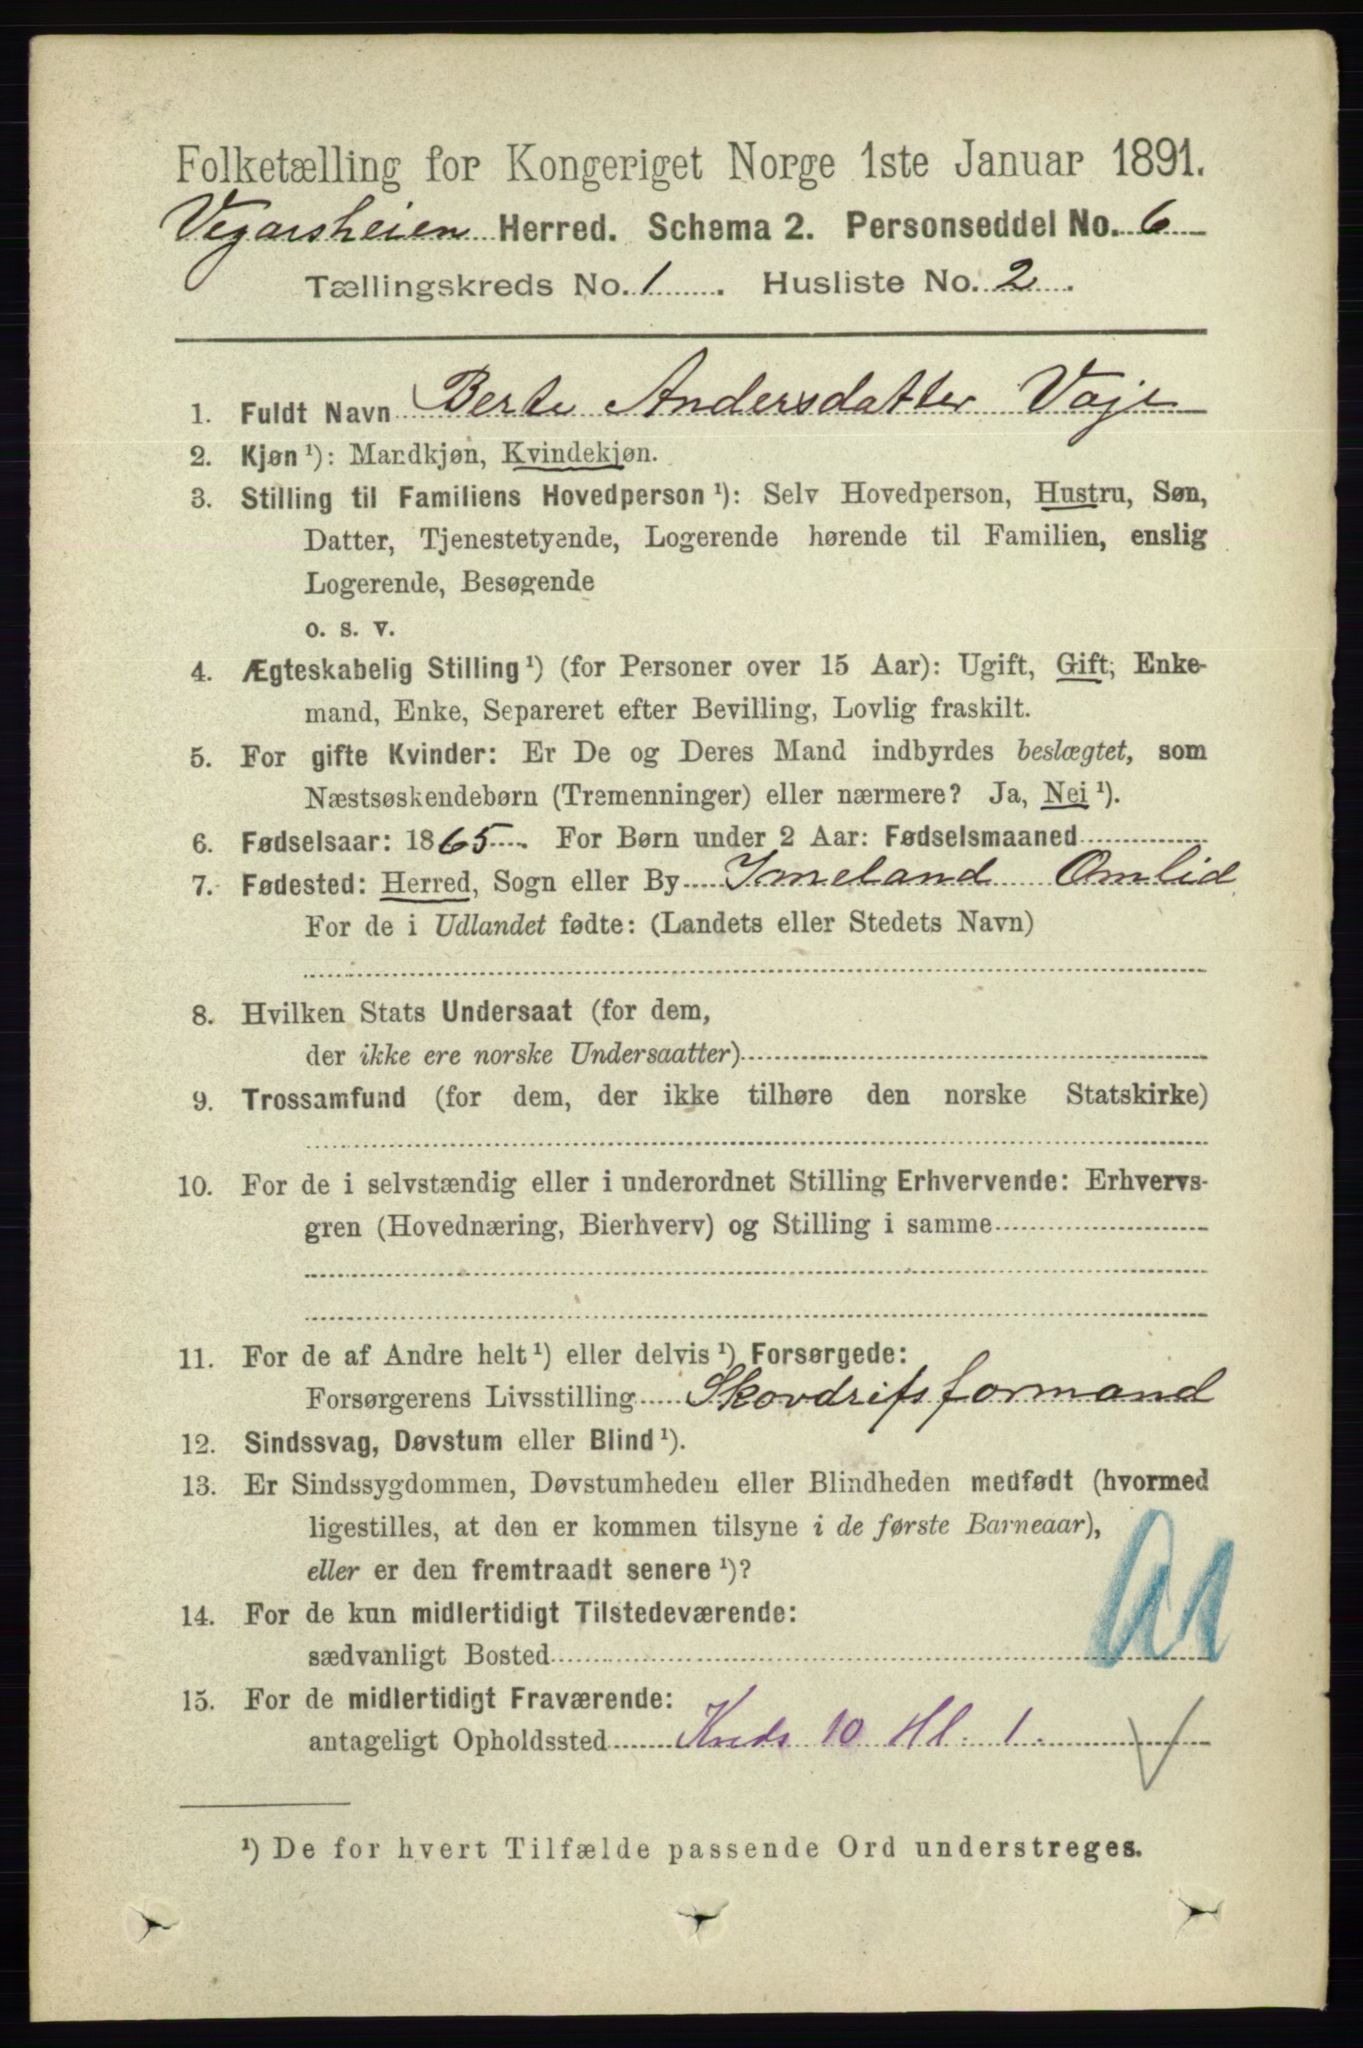 Folketælling for Kongeriget Norge 1ste Januar 1891.
Vegarsheien Herred. Schema 2. Personseddel No. 6
Tællingskreds No. 1 . Husliste No. 2 .
1. Fuldt Navn Berte Andersdatter Vaje
2. Kjøn ¹): Mandkjøn, Kvindekjøn.
3. Stilling til Familiens Hovedperson ¹): Selv Hovedperson, Hustru, Søn,
Datter, Tjenestetyende, Logerende hørende til Familien, enslig
Logerende, Besøgende
o. s. v.
4. Ægteskabelig Stilling ¹) (for Personer over 15 Aar): Ugift, Gift, Enke-
mand, Enke, Separeret efter Bevilling, Lovlig fraskilt.
5. For gifte Kvinder: Er De og Deres Mand indbyrdes beslægtet, som
Næstsøskendebørn (Tremenninger) eller nærmere? Ja, Nei ¹).
6. Fødselsaar: 1865. For Børn under 2 Aar: Fødselsmaaned
7. Fødested: Herred, Sogn eller By Imeland Omlid
For de i Udlandet fødte: (Landets eller Stedets Navn)
8. Hvilken Stats Undersaat (for dem,
der ikke ere norske Undersaatter)
9. Trossamfund (for dem, der ikke tilhøre den norske Statskirke)
10. For de i selvstændig eller i underordnet Stilling Erhvervende: Erhvervs-
gren (Hovednæring, Bierhverv) og Stilling i samme
11. For de af Andre helt ¹) eller delvis ¹) Forsørgede:
Forsørgerens Livsstilling Skovdrifsformand
12. Sindssvag, Døvstum eller Blind ¹).
13. Er Sindssygdommen, Døvstumheden eller Blindheden medfødt (hvormed
ligestilles, at den er kommen tilsyne i de første Barneaar),
eller er den fremtraadt senere ¹)?
14. For de kun midlertidigt Tilstedeværende:
sædvanligt Bosted
15. For de midlertidigt Fraværende:
antageligt Opholdssted Kreds 10 Hl. 1.
¹) De for hvert Tilfælde passende Ord understreges.